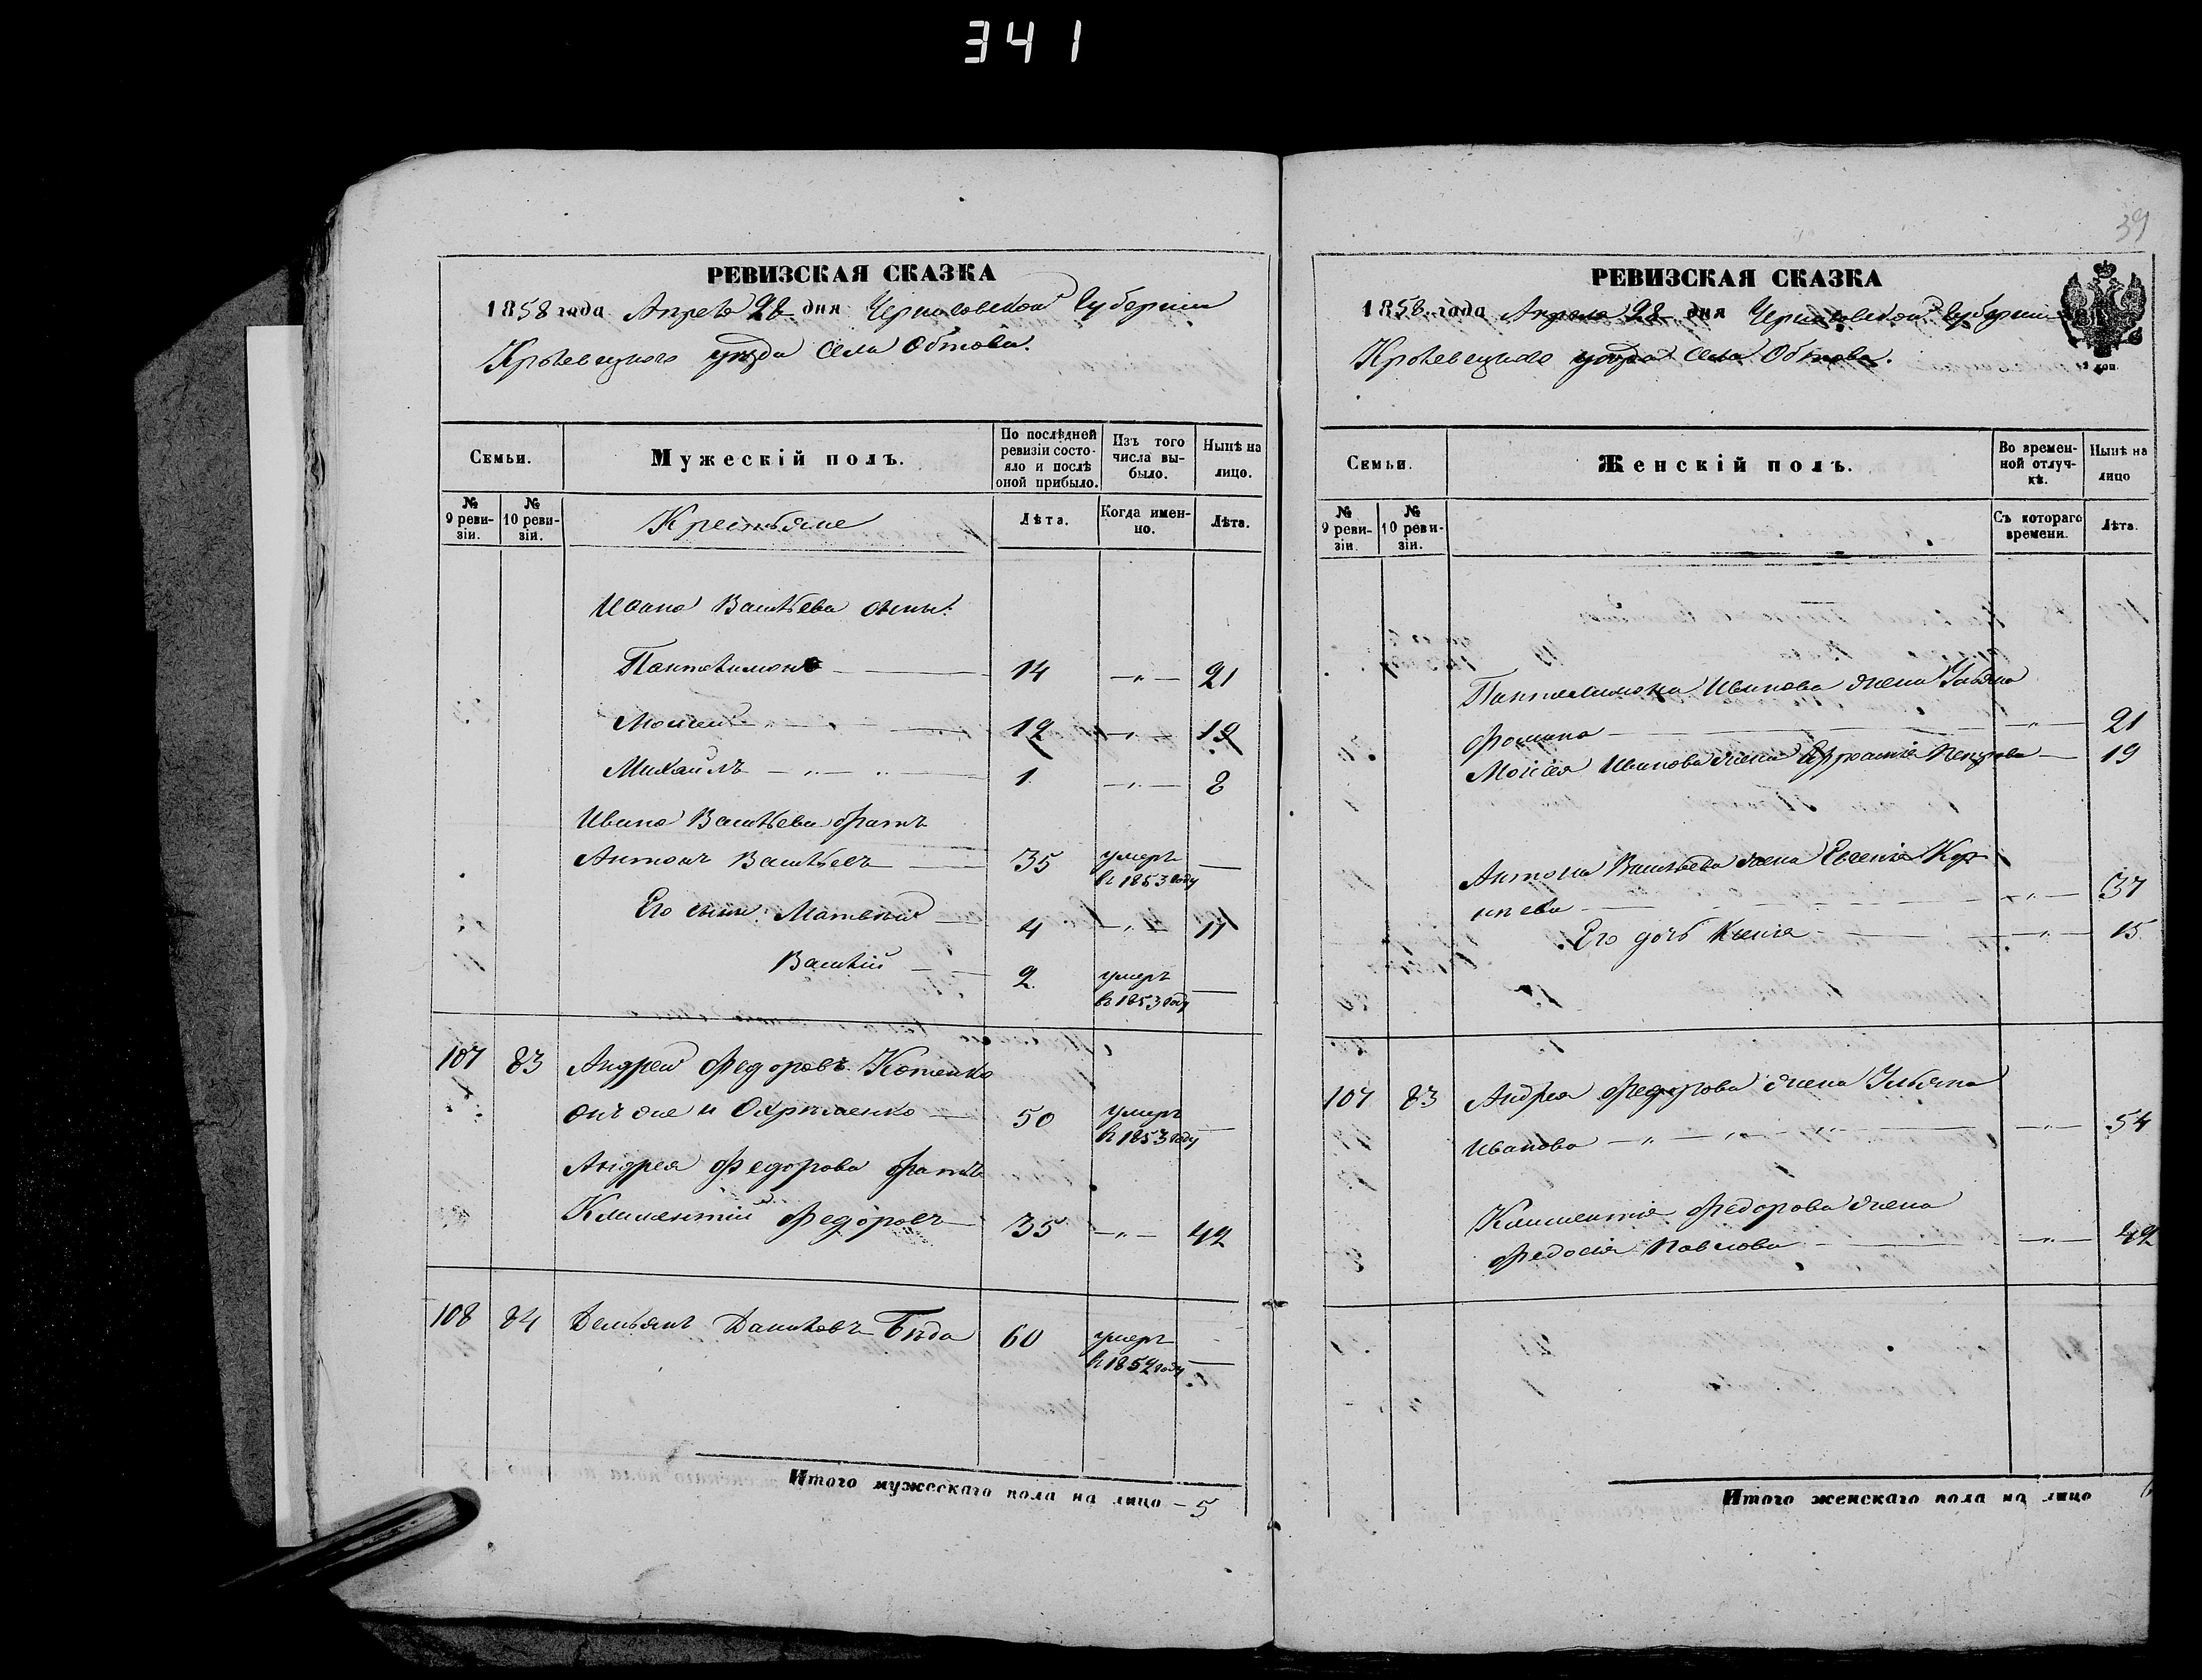 341
39
РЕВИЗСКАЯ СКАЗКА
1858 года Апреля 28 дня Черниговской Губернии
Кролевецкого уѣзда Села Обтова.
Семьи.
Мужескій полъ.
По послѣдней ревизіи состояло и послѣ оной прибыло.
Изъ того числа выбыло.
Нынѣ на лицо.
№ 9 ревизіи.
№ 10 ревизіи.
Крестьяне
Лѣта.
Когда именно.
Лѣта.
Ивана Васильева сыны:
Пантелимонъ — 14 — „ — 21
Моисей — „ — 12 — „ — 19
Михаилъ — „ — „ — 1 — „ — 8
Ивана Васильева братъ
Антонъ Васильевъ — 35 умеръ въ 1853 году —
Его сыны: Матвѣй — 4 — „ — 11
Василій — 2 умеръ въ 1853 году —
107 83 Андрей Федоровъ Котенко
онъ же и Охрѣменко — 50 умеръ въ 1853 году —
Андрея Федорова братъ
Климентій Федоровъ — 35 — „ — 42
108 84 Демьянъ Даниловъ Бѣда 60 умеръ въ 1857 году —
Итого мужескаго пола на лицо — 5
РЕВИЗСКАЯ СКАЗКА
1858 года Апреля 28 дня Черниговской Губернии
Кролевецкого уѣзда Села Обтова.
Семьи.
Женскій полъ.
Во временной отлучкѣ.
Нынѣ на лицо
№ 9 ревизіи.
№ 10 ревизіи.
Съ котораго времени.
Лѣта.
Пантелимона Иванова жена Ульяна
Фомина — „ — 21
Моисея Иванова жена Ефросинія Петрова — 19
Антона Васильева жена Евгенія Кор-
нѣева — „ — 37
Его дочь Ксенія — „ — 15
107 83 Андрея Федорова жена Ульяна
Иванова — „ — „ — „ — 54
Климентія Федорова жена
Федосія Павлова — „ — 42
Итого женскаго пола на лицо 6